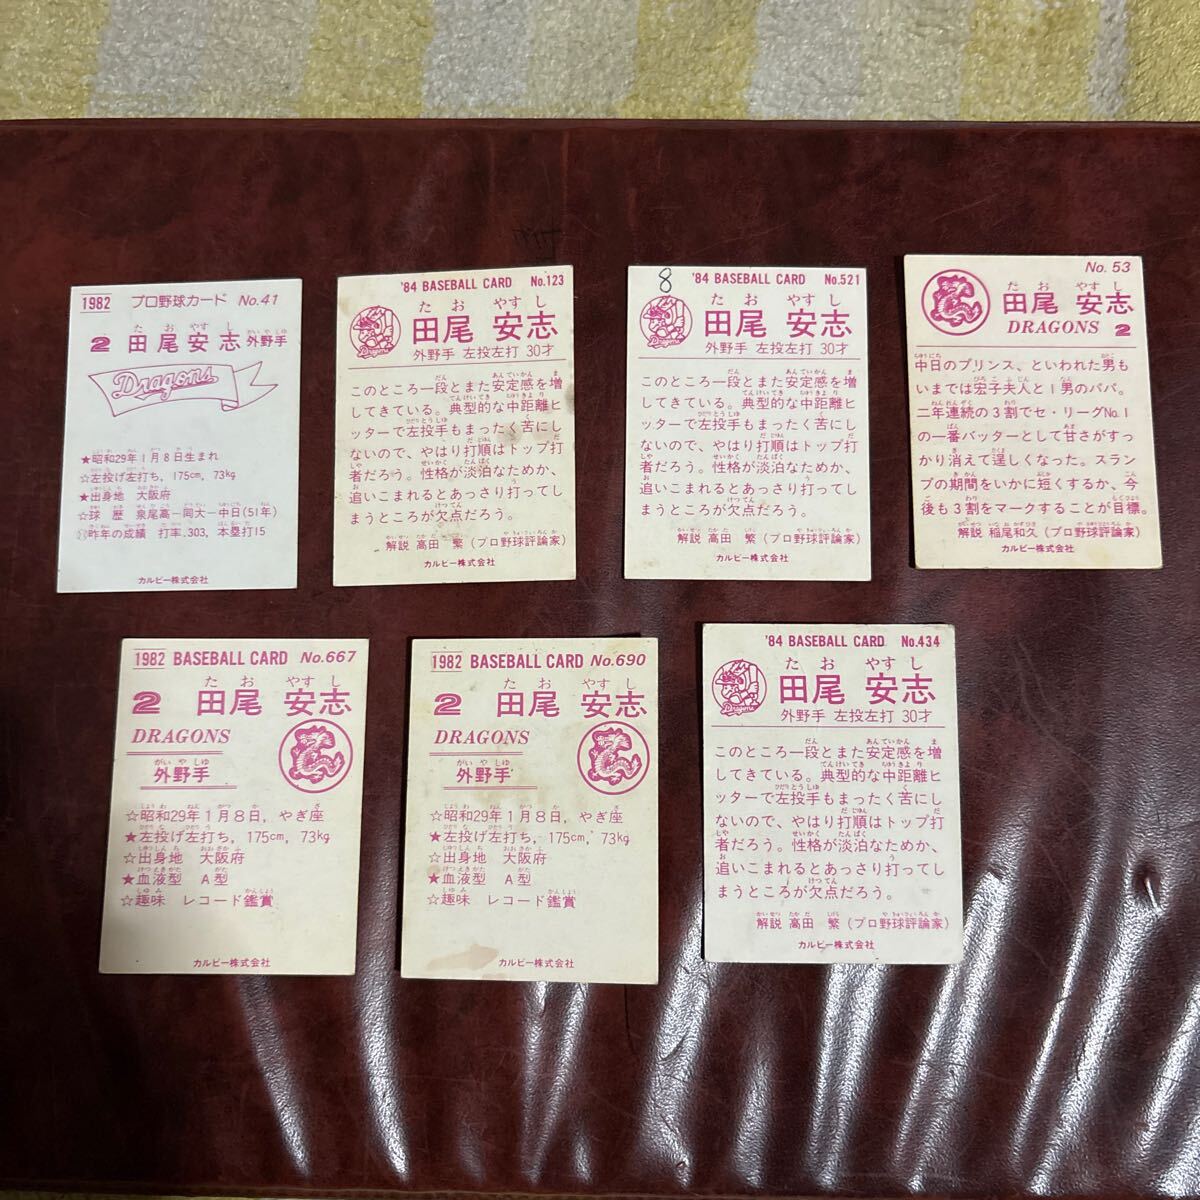 1982 プロ野球カード No.41
た お やす し
2 田尾安志 外野手
がい や しゅ
Dragons
★昭和29年1月8日生まれ
☆左投げ左打ち, 175cm, 73kg
★出身地 大阪府
☆球 歴 泉尾高―同大―中日(51年)
昨年の成績 打率.303, 本塁打15
カルビー株式会社
'84 BASEBALL CARD No.123
た お やす し
田尾 安志
外野手 左投左打 30才
Dragons
このところ一段とまた安定感を増
してきている。典型的な中距離ヒ
ッターで左投手もまったく苦にし
ないので、やはり打順はトップ打
者だろう。性格が淡泊なためか、
追いこまれるとあっさり打ってし
まうところが欠点だろう。
解説 高田 繁(プロ野球評論家)
カルビー株式会社
8
'84 BASEBALL CARD No.521
た お やす し
田尾 安志
外野手 左投左打 30才
Dragons
このところ一段とまた安定感を増
してきている。典型的な中距離ヒ
ッターで左投手もまったく苦にし
ないので、やはり打順はトップ打
者だろう。性格が淡泊なためか、
追いこまれるとあっさり打ってし
まうところが欠点だろう。
解説 高田 繁(プロ野球評論家)
カルビー株式会社
No. 53
た お やす し
田尾 安志
DRAGONS 2
中日のプリンス、といわれた男も
いまでは宏子夫人と1男のパパ。
二年連続の3割でセ・リーグNo.1
の一番バッターとして甘さがすっ
かり消えて逞しくなった。スラン
プの期間をいかに短くするか、今
後も3割をマークすることが目標。
解説 稲尾和久(プロ野球評論家)
カルビー株式会社
1982 BASEBALL CARD No.667
た お やす し
2 田尾 安志
DRAGONS
がい や しゅ
外野手
☆昭和29年1月8日, やぎ座
★左投げ左打ち, 175cm, 73kg
☆出身地 大阪府
★血液型 A型
☆趣味 レコード鑑賞
カルビー株式会社
1982 BASEBALL CARD No.690
た お やす し
2 田尾 安志
DRAGONS
がい や しゅ
外野手
☆昭和29年1月8日, やぎ座
★左投げ左打ち, 175cm, 73kg
☆出身地 大阪府
★血液型 A型
☆趣味 レコード鑑賞
カルビー株式会社
'84 BASEBALL CARD No.434
た お やす し
田尾 安志
外野手 左投左打 30才
Dragons
このところ一段とまた安定感を増
してきている。典型的な中距離ヒ
ッターで左投手もまったく苦にし
ないので、やはり打順はトップ打
者だろう。性格が淡泊なためか、
追いこまれるとあっさり打ってし
まうところが欠点だろう。
解説 高田 繁(プロ野球評論家)
カルビー株式会社